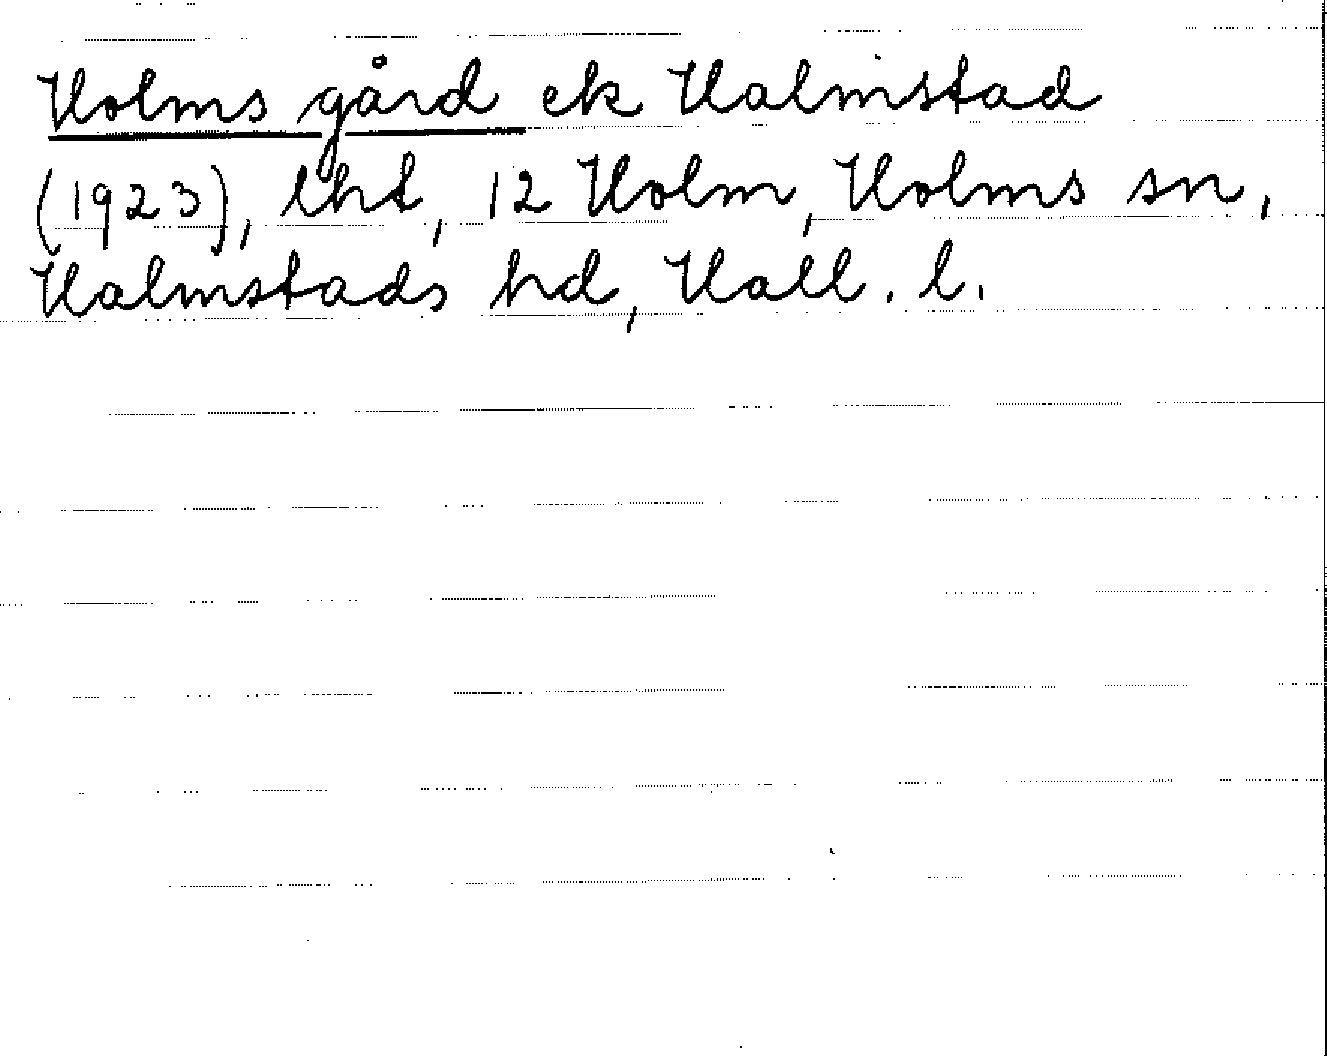 Holms gård ek Halmstad
(1923), lht, 12 Holm, Holms sn,
Halmstads hd, Hall. l.